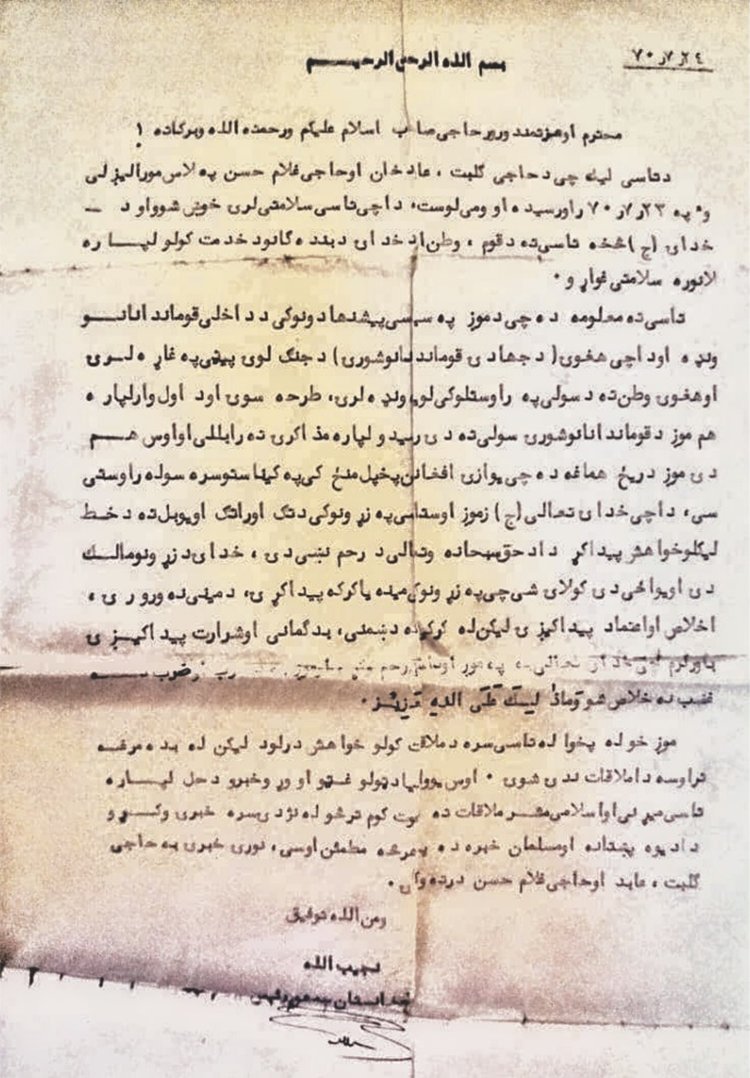 ۷۰ر۷ر۲٤
بسم الله الرحمن الرحیـــــم
محترم اوعزتمند ورور حاجی صاحب اسلام علیکم ورحمته الله وبرکاته !
د تاسی لیک چی د حاجی گلبت ، عابد خان اوحاجی غلام حسن په لاس مورالیږلی
و، په ۲۳ر۷ر۷۰ را ورسیده او ومی لوست، دا چی تاسی سلامتی لری خوښ شوو او د
خدای (ج) څخه تاسی ته د قوم ، وطن او د خدای د بنده گانو د خدمت کولو لپـــاره
لانوره سلامتی غواړو ۰
تاسی ته معلومه ده چی د موږ په سیسی پیشنهادونوکی د داخلی قوماندانانـــو
ونډه او دا چی هغوی ( د جهادی قوماندانانوشوری) د جنگ لوی پیټی په غاړه لـــری
اوهغوی وطن ته د سولی په راوستلوکی لویه ونډه لری، طرحه سوی او د اول وار لپاره
هم موږ د قوماندانانوشوری سولی ته د رسیدو لپاره مذاکری ته رابللی او اوس هـــم
دی موږ دریځ هماغه ده چی یوازی افغانان پخپل منځ کی په کیناستوسره سوله راوستی
سی، دا چی خدای تعالی (ج) زموږ اوستاسی په زړونوکی د تگ اوراتگ اویوبل ته د خـط
لیکلوخواهش پیدا کړ دا د حق سبحانه وتعالی د رحم نښی دی ، خدای د زړونومالـــک
دی اویواځی دی کولای شی چی په زړونوکی مینه یا کرکه پیدا کړی، د مینی نه وروری ،
اخلاص اواعتماد پیدا کیږی لیکن له کرکی نه دښمنی، بدگمانی اوشرارت پیدا کیـــږی
باورلرم چی خدای تعالی په موږ اوتاسی رحم
غضب نه خلاص شو وماذٰلک علی الله بعزیز ۰
موږ خو له پخوا له تاسی سره د ملاقات کولو خواهش درلود لیکن له بده مرغـه
تراوسه دا ملاقات ندی شوی ۰ اوس یوولیا د ټولو غټو او وړو خبرو د حل لپـــاره
تاسی میړنی او اسلامی مشـــر ملاقات ته کوم ترڅو له نژدی سره خبری وکـــړو
دا د یوه پښتانه اومسلمان خبره ده مطمئن اوسی، نوری خبری به حاجی
گلبت ، عابد اوحاجی غلام حسن درته وایی ۰
ومن الله توفیق
نجیب الله
د افغانستان جمهور رئیس